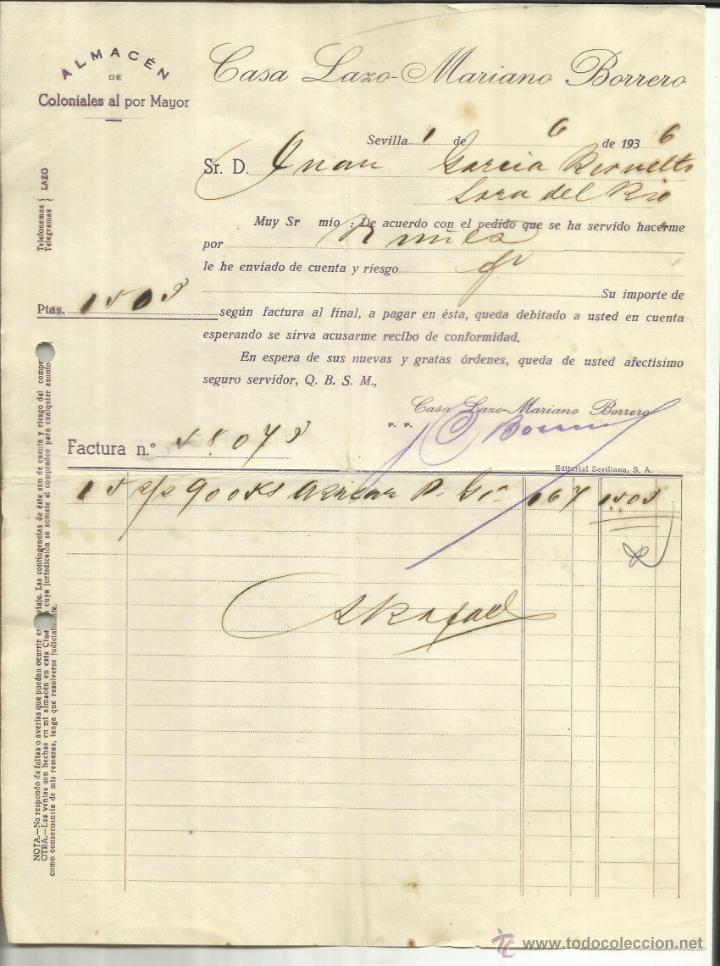 ALMACÉN
DE
Coloniales al por Mayor
Casa Lazo-Mariano Borrero
Sevilla 1 de 6 de 1936
Sr. D. Juan Garcia
Lora del Rio
Telefonemas } LAZO
Telegramas
Muy Sr mio : De acuerdo con el pedido que se ha servido hacerme
por
le he enviado de cuenta y riesgo
Su importe de
Ptas. 1503 según factura al final, a pagar en ésta, queda debitado a usted en cuenta
esperando se sirva acusarme recibo de conformidad.
En espera de sus nuevas y gratas órdenes, queda de usted afectísimo
seguro servidor, Q. B. S. M.,
Casa Lazo-Mariano Borrero
P. P.
Borrero
Factura n.º
Editorial Sevillana, S. A.
15 s/s 900 Ks Azúcar 167 1503
NOTA.—No respondo de faltas o averías que puedan ocurrir en viaje. Las contingencias de éste son de cuenta y riesgo del compr
OTRA.—Las ventas son hechas en mi almacén en esta Ciud a cuya jurisdicción se somete el comprador para cualquier asunto
como consecuencia de mis remesas, tenga que resolverse judicialmente.
www.todocoleccion.net